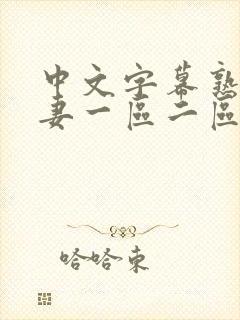 中文字幕熟
妻一區二區
哈哈東